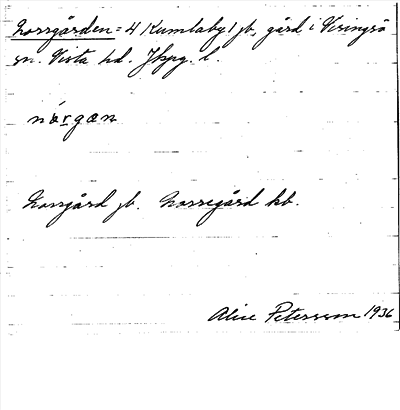 Norrgården = 4 Kumlaby 1 jb, gård i Visingsö
sn. Vista hd. Jkpg. l.
nȧrgæn
Norrgård jb. Norregård kb.
Alice Petersson 1936